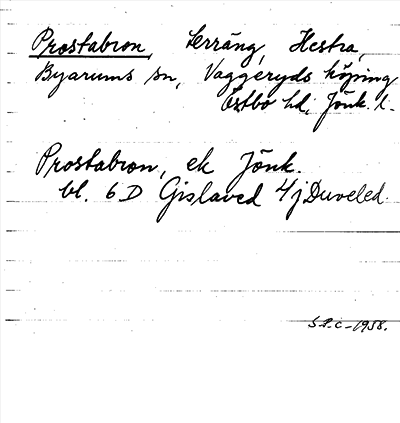 Prostabron, terräng, Hestra,
Byarums sn, Vaggeryds köping
Östbo hd, Jönk. l.
Prostabron, ek Jönk.
bl. 6 D Gislaved 4/j Duveled.
S.L.C-1958.